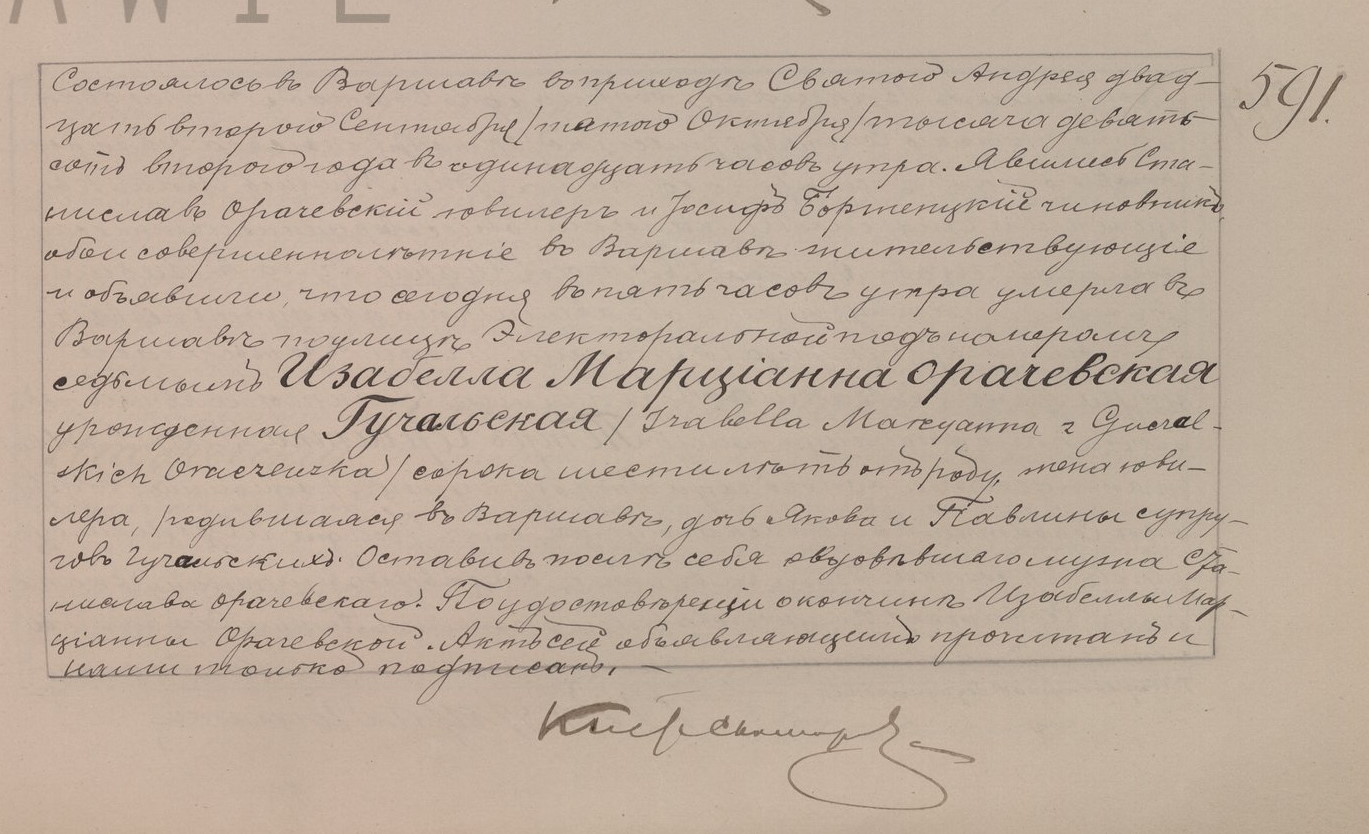 591.
Состоялось въ Варшавѣ въ приходѣ Святого Андрея двад-
цать второго Сентября /пятого Октября/ тысяча девять-
сотъ второго года въ одинадцать часовъ утра. Явились Ста-
ниславъ Орачевскій ювилеръ и Іосифъ чиновникъ,
обои совершеннолѣтніе въ Варшавѣ жительствующіе
и объявили, что сегодня въ пять часовъ утра умерла въ
Варшавѣ по улицѣ Электоральной подъ номеромъ
седьмымъ Изабелла Марціанна Орачевская
урожденная Гучальская / Izabella Marcyanna z Guczal-
skich Oraczewska / сорока шести лѣтъ отъ роду, жена юви-
лера, родившаяся въ Варшавѣ, дочь Якова и Павлины супру-
говъ Гучальскихъ. Оставивъ послѣ себя овдовѣвшаго мужа Ста-
нислава Орачевскаго. По удостовѣреніи о кончинѣ Изабеллы Мар-
ціанны Орачевской. Актъ сей объявляющимъ прочитанъ и
нами только подписанъ. —